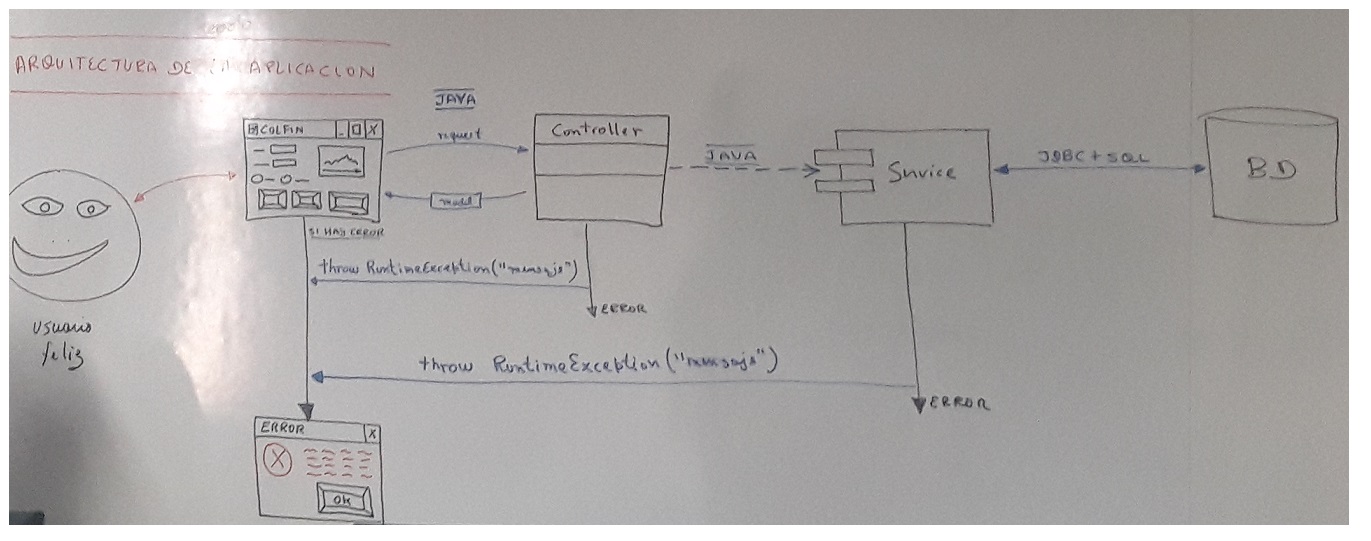 ARQUITECTURA DE la APLICACION
JAVA
COLFIN
X
request
Controller
JAVA
Service
JDBC + SQL
BD
model
SI HAY ERROR
throw RuntimeException("mensaje")
ERROR
usuario
feliz
throw RuntimeException("mensaje")
ERROR
ERROR
X
X
OK